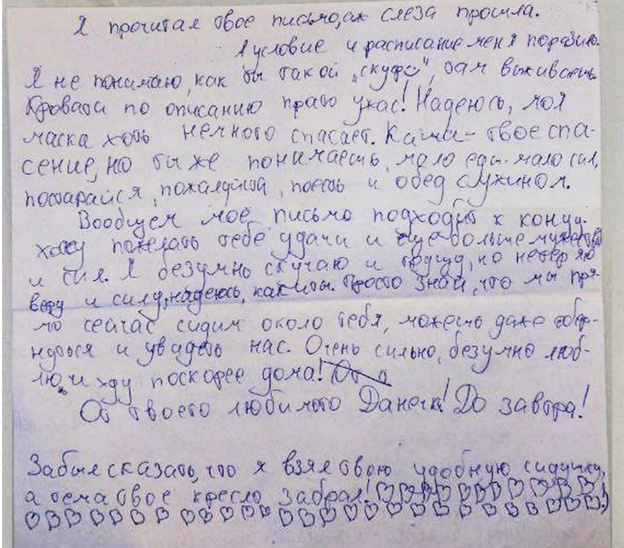 Я прочитал твое письмо, аж слеза прошла.
А условие и расписание меня поразило.
Я не понимаю, как ты такой „скуф", там выживаешь.
Кровати по описанию прато ужас! Надеюсь, моя
маска хоть немного спасает. Каши - твое спа-
сение, но ты же понимаешь, мало еды-мало сил,
постарайся, пожалуйста, поесть и обед с ужином.
Вообщем мое письмо подходит к концу.
хочу пожелать тебе удачи и еще больше мужества
и сил. Я безумно скучаю и грущу, но не теряю
веру и силу, надеюсь, как и ты. Просто знай, что мы пря-
мо сейчас сидим около тебя, можешь даже обер-
нуться и увидеть нас. Очень сильно, безумно люб-
лю, и жду поскорее дома!
От твоего любимого Данечки! До завтра!
Забыл сказать, что я взял твою удобную сидушку,
а тема твое кресло забрал!